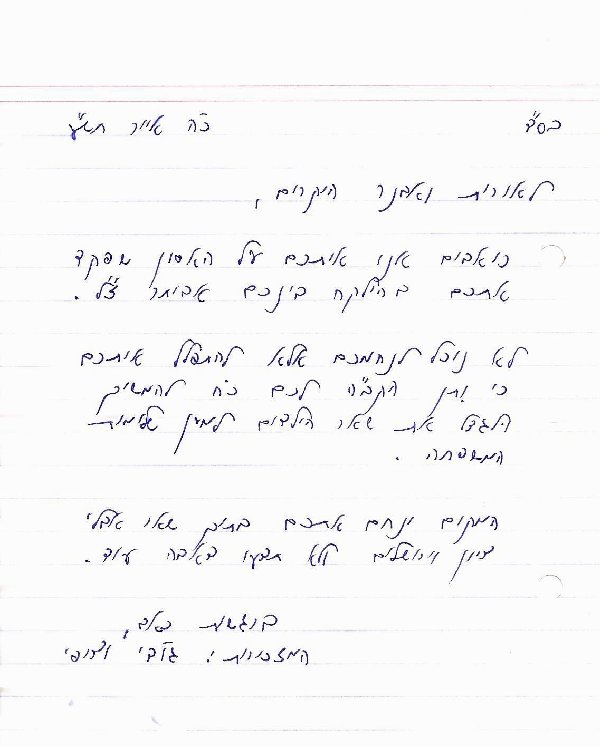 בס"ד
כ"ה אייר תשע"
לאורית ואבנר היקרים,
כואבים אנו איתכם על האסון שפקד
אתכם בהילקח בינכם אביתר ז"ל.
לא נוכל לנחמכם אלא להתפלל איתכם
כי יתן הקב"ה לכם כח להמשיך
ולגדל את שאר הילדים למען שלימות
המשפחה.
המקום ינחם אתכם בתוך שאר אבלי
ציון וירושלים ולא תדעו דאבה עוד.
המזכירות: גבי וצופי